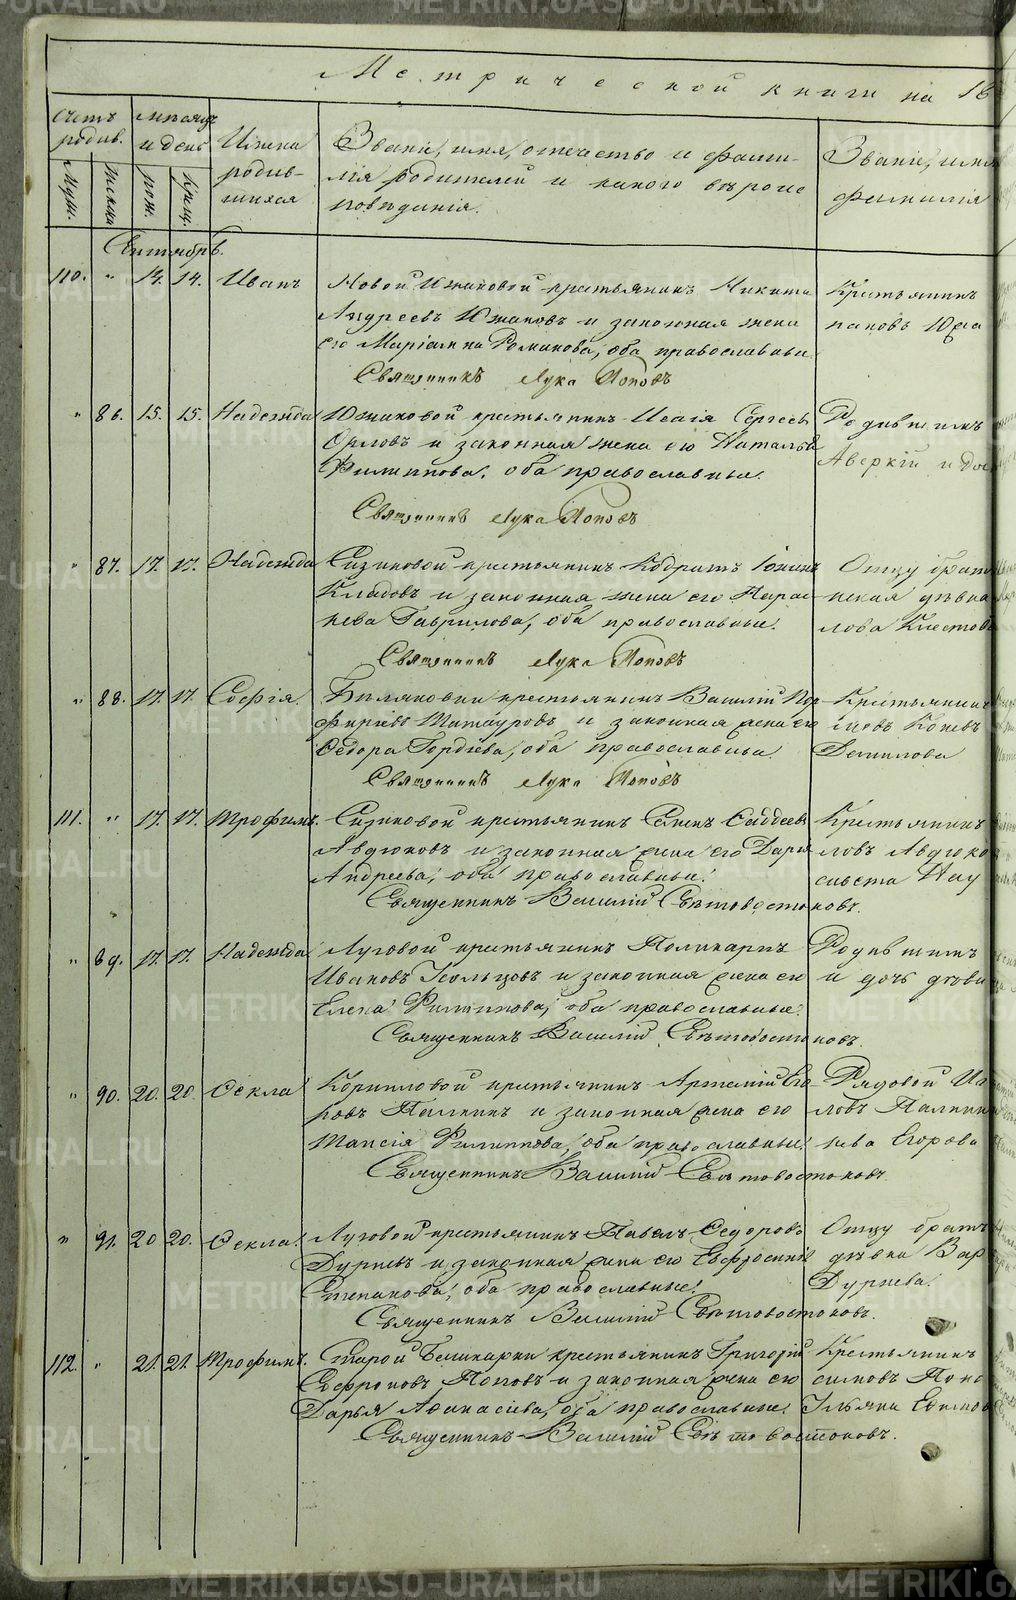 Метрической книги на 18
Счетъ родив.
Муж.
Женска
Мѣсяцъ и день
рож.
крещ.
Имена родив-
шихся
Званіе, имя, отчество и фами-
лія родителей и какого вѣроис
повѣданія.
Званіе, имя
фамилія
Сентябрь.
110. " 14. 14. Иванъ
Новой Южаковой крестьянинъ Никита
Андреевъ Южаковъ и законная жена
его Маріамна Романова, оба православные
Священникъ Лука Поповъ
Крестьянинъ
паковъ Южа
" 86. 15. 15. Надежда
Южаковой крестьянинъ Исаія Сергеевъ
Орловъ и законная жена его Наталья
Филиппова, оба православные.
Священникъ Лука Поповъ
Родившимъ
Аверкій и до
" 87. 17. 17. Надежда
Сизиковой крестьянинъ Кодратъ
Кладовъ и законная жена его Парас-
кева Гаврилова, оба православные.
Священникъ Лука Поповъ
Отцу братъ
ская дѣвка
лова
" 88. 17. 17. Софія.
крестьянинъ Василій Пор-
фирьевъ Татауровъ и законная жена его
Ѳедора Гордѣева, оба православные
Священникъ Лука Поповъ
Крестьянинъ
Данилова
111. " 17. 17. Трофимъ.
Сизиковой крестьянинъ Саддеевъ
Авдюковъ и законная жена его Дарья
Андреева, оба православные.
Священникъ Василій Свѣтовостоковъ.
Крестьянинъ
ловъ Авдюко
Нау
" 89. 17. 17. Надежда
Луговой крестьянинъ Поликарпъ
Ивановъ Усольцовъ и законная жена его
Елена Филиппова, оба православные.
Священникъ Василій Свѣтовостоковъ.
Родившимъ
и дочь дѣви
" 90. 20. 20. Ѳекла
Корниловой крестьянинъ Артемій Его-
ровъ Палкинъ и законная жена его
Таисія Филиппова, оба православные.
Священникъ Василій Свѣтовостоковъ.
Рядовой
ловъ Палкинъ
ева Егорова
" 91. 20 20. Ѳекла.
Луговой крестьянинъ Павелъ Ѳедоровъ
Дурневъ и законная жена его Евфросинія
Степанова, оба православные.
Священникъ Василій Свѣтовостоковъ.
Отцу братъ
дѣвка Вар
Дурнева.
112. " 21. 21. Трофимъ.
Старой Башкарки крестьянинъ Григорій
Софроновъ Поповъ и законная жена его
Дарья Аѳанасіева, оба православные.
Священникъ Василій Свѣтовостоковъ.
Крестьянинъ
симовъ Попо
METRIKI.GASO-URAL.RU